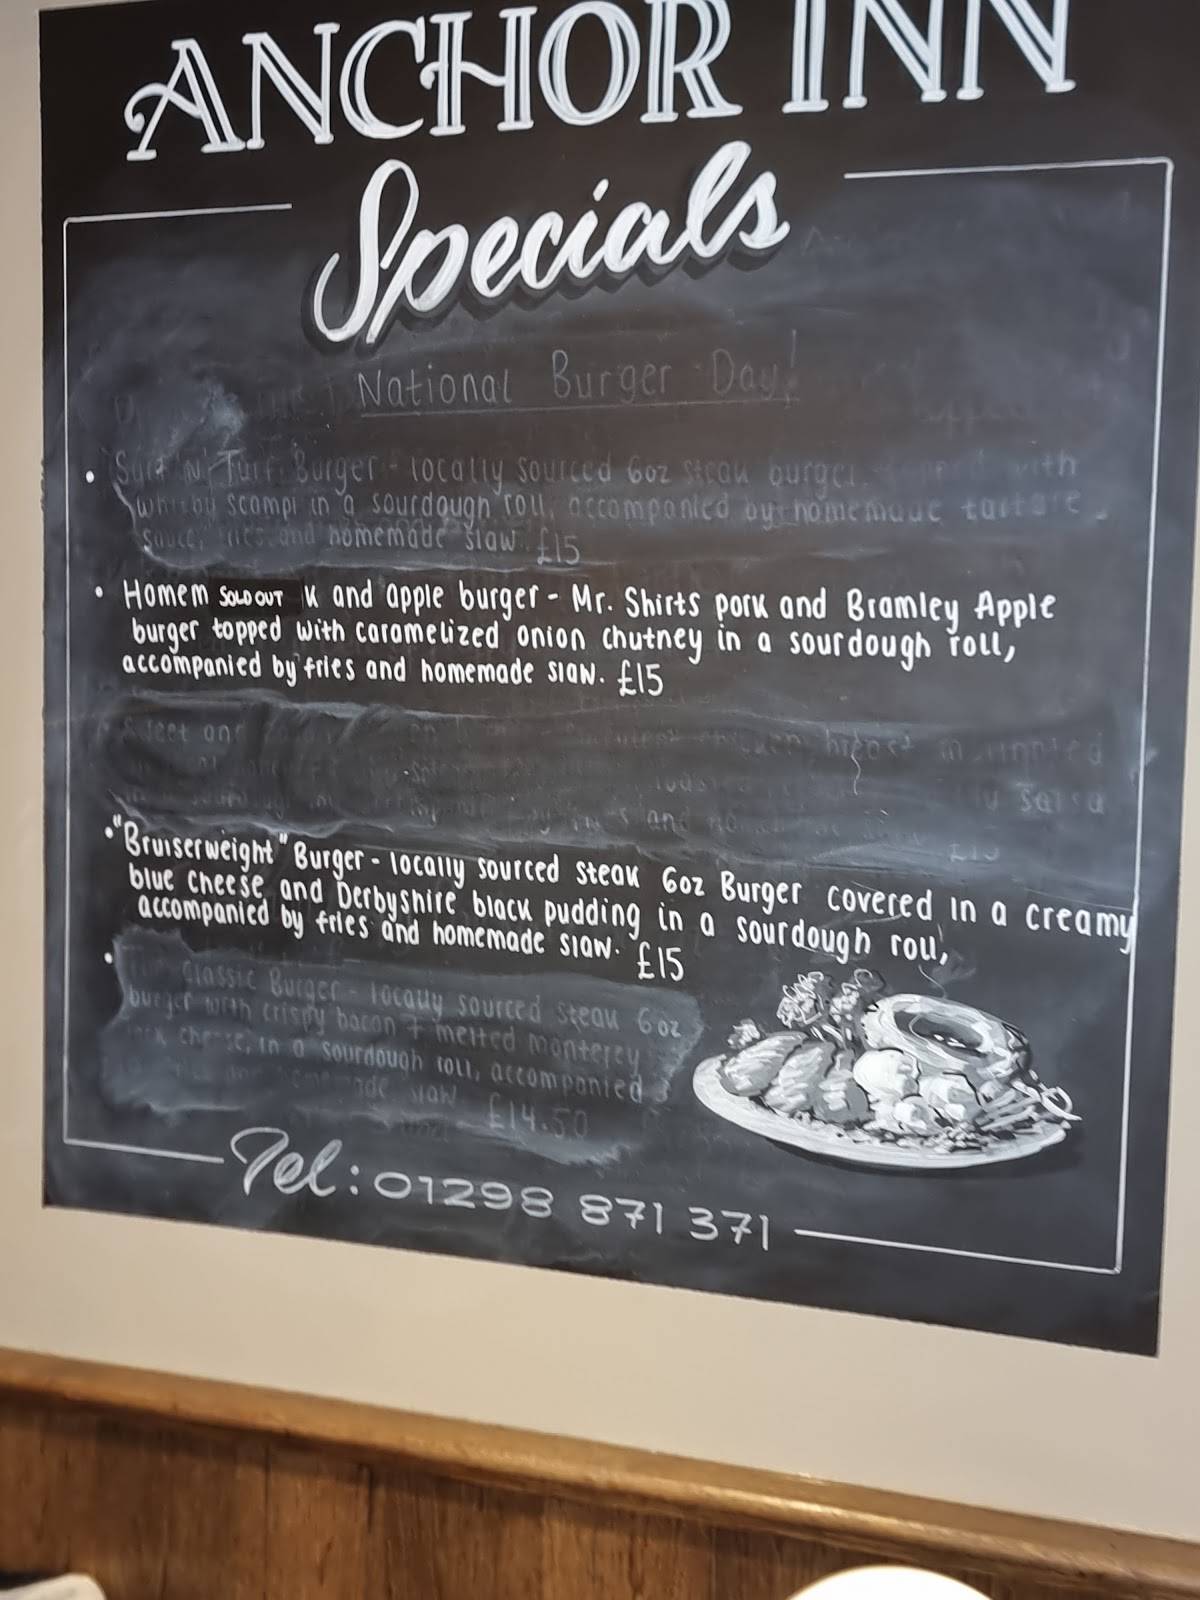 ANCHOR INN
Specials
National Burger Day!
Surf 'N' Turf Burger - locally sourced 6oz steak burger topped with
whitby scampi in a sourdough roll, accompanied by homemade tartare
sauce, fries and homemade slaw. £15
• Homem SOLD OUT k and apple burger - Mr. Shirts pork and Bramley Apple
burger topped with caramelized onion chutney in a sourdough roll,
accompanied by fries and homemade slaw. £15
Sweet and chicken breast marinated
salsa
and
• "Bruiserweight" Burger - locally sourced steak 6oz Burger covered in a creamy
blue cheese and Derbyshire black pudding in a sourdough roll,
accompanied by fries and homemade slaw. £15
• Classic Burger - locally sourced steak 6oz
burger with crispy bacon + melted monterey
jack cheese, in a sourdough roll, accompanied
homemade slaw £14.50
Tel: 01298 871 371